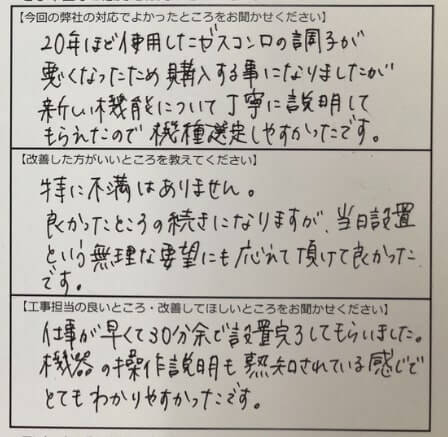 【今回の弊社の対応でよかったところをお聞かせください】
20年ほど使用したガスコンロの調子が
悪くなったため購入する事になりましたが
新しい機能について丁寧に説明して
もらえたので機種選定しやすかったです。
【改善した方がいいところを教えてください】
特に不満はありません。
良かったところの続きになりますが、当日設置
という無理な要望にも応れて頂けて良かった
です。
【工事担当の良いところ・改善してほしいところをお聞かせください】
仕事が早くて30分余で設置完了してもらいました。
機器の操作説明も熟知されている感じで
とてもわかりやすかったです。